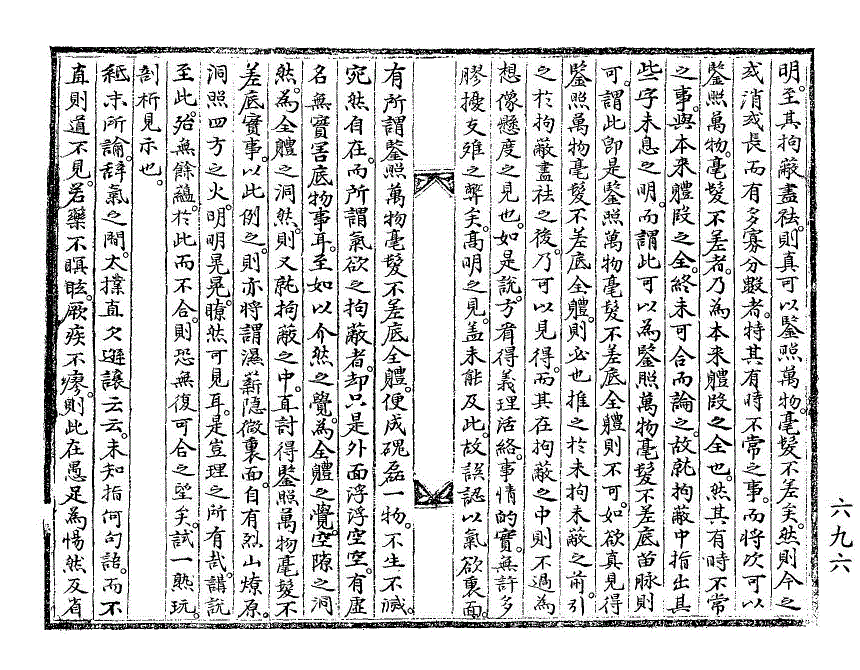 明。至其拘蔽盡祛。則真可以鑒照萬物。毫髮不差矣。然則今之
或消或長。而有多寡分數者。特其有時不常之事。而將次可以
鑒照萬物。毫髮不差者。乃爲本來體段之全也。然其有時不常
之事。與本來體段之全。終未可合而論之。故就拘蔽中指出其
些字未息之明。而謂此可以爲鑒照萬物毫髮不差底苗脉則
可。謂此卽是鑒照萬物毫髮不差底全體則不可。如欲真見得
鑒照萬物毫髮不差底全體。則必也推之於未拘未蔽之前。引
之於拘蔽盡祛之後。乃可以見得。而其在拘蔽之中則不過爲
想像懸度之見也。如是說。方看得義理活絡。事情的實。無許多
膠擾支離之弊矣。高明之見。盖未能及此。故誤認以氣欲裏面。
有所謂鑒照萬物毫髮不差底全體。便成磈磊一物。不生不滅。
宛然自在。而所謂氣欲之拘蔽者。却只是外面浮浮空空。有虛
名無實害底物事耳。至如以介然之覺。爲全體之覺。空隙之洞
然。爲全體之洞然。則又就拘蔽之中。直討得鑒照萬物毫髮不
差底實事。以此例之。則亦將謂濕薪隱微裏面。自有烈山燎原。
洞照四方之火。明明晃晃。瞭然可見耳。是豈理之所有哉。講說
至此。殆無餘蘊。於此而不合。則恐無復可合之望矣。試一熟玩。
剖析見示也。
紙末所論。辭氣之間。太撲直欠遜讓云云。未知指何句語。而不
直則道不見。若藥不瞑眩。厥疾不瘳。則此在愚足爲惕然及省
六九六